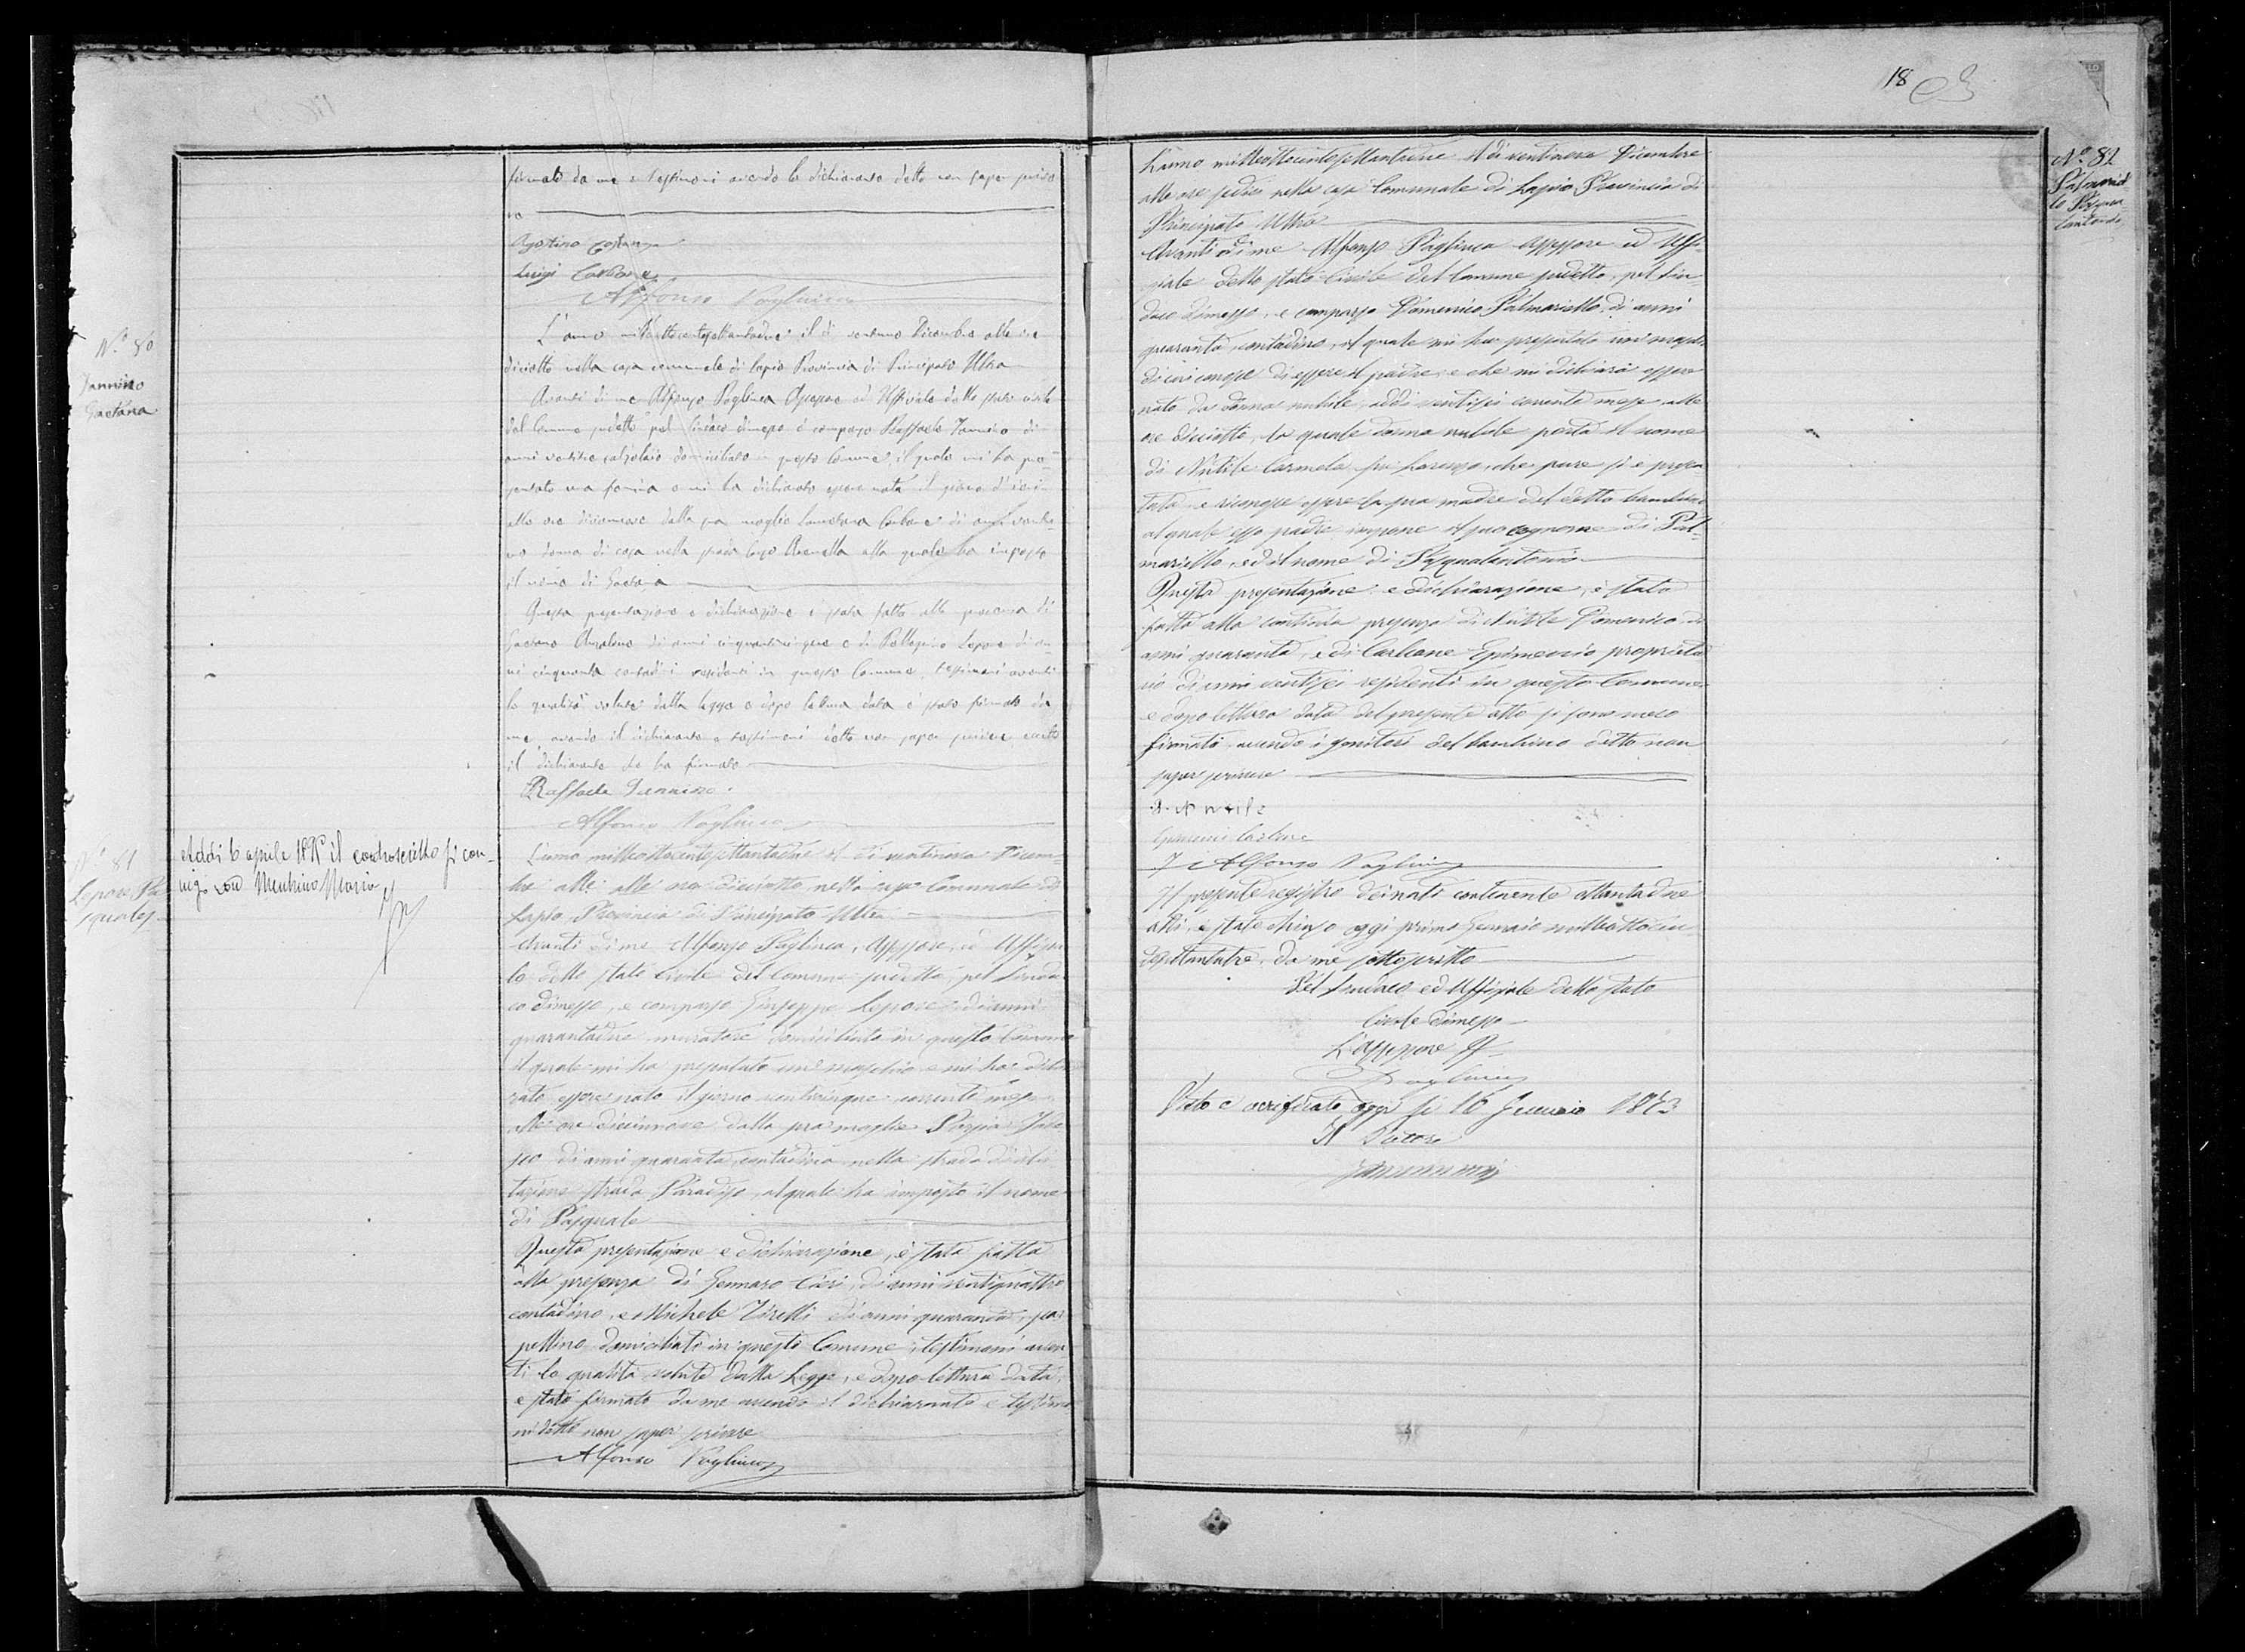 firmato da me e testimoni avendo la dichiarante detto non saper scrive
re
Agostino
Luigi Carbone
Alfonso Pagliuca
N.º 80
Iannino
Gaetana
L'anno milleottocentosettantadue il dì ventuno Dicembre alle ore
diciotto nella casa comunale di Lapio Provincia di Principato Ultra
Avanti di me Alfonso Pagliuca Assessore ed Uffiziale dello stato civile
del Comune sudetto pel Sindaco dimesso è comparso Raffaele Iannino di
anni calzolaio domiciliato in questo Comune, il quale mi ha pre-
sentato una femina e mi ha dichiarato essere nata il giorno d'ieri
alle ore dalla sua moglie Carbone di anni
no donna di casa nella strada largo alla quale ha imposto
il nome di Gaetana
Questa presentazione e dichiarazione è stata fatta alla presenza di
Gaetano di anni cinquantacinque e di Pellegrino Lepore di an-
ni cinquanta contadini residenti in questo Comune, testimoni aventi
le qualità volute dalla legge e dopo lettura data è stato firmato da
me, avendo il dichiarante e testimoni detto non saper scrivere eccetto
il dichiarante che ha firmato
Raffaele Iannino
Alfonso Pagliuca
N.º 81
Lepore Pa
squale
Addì 6 aprile il controscritto si con-
iugò con Maria
L'anno milleottocentosettantadue il dì ventinove Dicem-
bre alle alle ore diciotto nella casa Comunale di
Lapio Provincia di Principato Ultra
Avanti di me Alfonso Pagliuca, Assessore, ed Uffizia
le dello stato Civile del Comune sudetto, pel Sinda
co dimesso, è comparso Giuseppe Lepore di anni
quarantadue muratore domiciliato in questo Comune
il quale mi ha presentato un maschio e mi ha dichia
rato essere nato il giorno venticinque corrente mese
alle ore diciannove dalla sua moglie
di anni quaranta contadina nella strada d'abi
tazione strada Paradiso, al quale ha imposto il nome
di Pasquale
Questa presentazione e dichiarazione, è stata fatta
alla presenza di Gennaro di anni ventiquattro
contadino, e Michele Tirelli di anni quaranta, scar
pellino domiciliati in questo Comune, testimoni aven
ti le qualità volute dalla Legge, e dopo lettura data,
è stato firmato da me avendo il dichiarante e testimo
ni detto non saper scrivere
Alfonso Pagliuca
18
N.º 82
Palmariel
lo Pasqua
lantonio
L'anno milleottocentosettantadue il dì ventinove Dicembre
alle ore sedici nella casa Comunale di Lapio Provincia di
Principato Ultra
Avanti di me Alfonso Pagliuca Assessore ed Uffi-
ziale dello stato Civile del Comune sudetto, pel Sin-
daco dimesso, è comparso Domenico Palmariello, di anni
quaranta, contadino, il quale mi ha presentato un maschio
di cui conosce di essere il padre, e che mi dichiara essere
nato da donna nubile, addì ventisei corrente mese, alle
ore diciotto, la quale donna nubile porta il nome
di Nutile Carmela fu Lorenzo, che pure si è presen
tata e riconosce essere la sua madre del detto bambino
al quale esso padre impone il suo cognome di Pal-
mariello, ed il nome di Pasqualantonio
Questa presentazione e dichiarazione, è stata
fatta alla continua presenza di Nutile Domenico di
anni quaranta, e di Carbone Epimenio proprieta
rio di anni ventisei residenti in questo Comune
e dopo lettura data del presente atto si sono meco
firmati avendo i genitori del bambino detto non
saper scrivere
Nutile
Epimenio Carbone
Alfonso Pagliuca
Il presente registro dei nati continente ottantadue
atti, è stato chiuso oggi primo Gennaio milleottocen
tosettantatre, da me sottoscritto
Pel Sindaco ed Uffiziale dello stato
Civile dimesso
L'Assessore
Pagliuca
Visto e verificato oggi lì 16 Gennaio 1873
Il Pretore